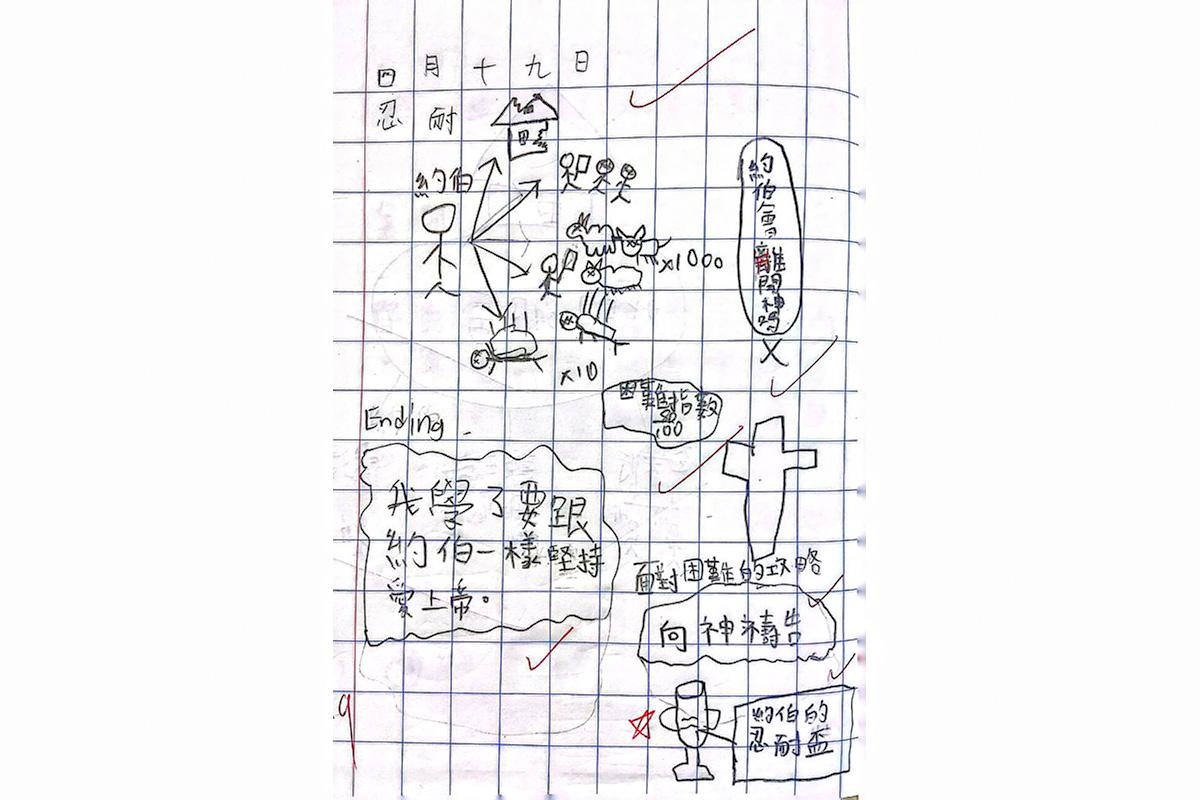 四月十九日
忍耐
約伯
約伯會離開神嗎
X
x1000
x10
困難指數
100
Ending
我學了要跟
約伯一樣堅持
愛上帝。
面對困難的攻略
向神禱告
約伯的
忍耐盃